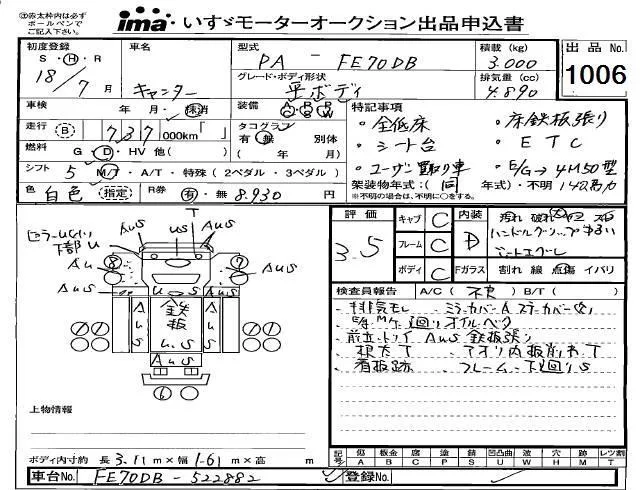 ㊟赤太枠内は必ず
ボールペンで
ご記入下さい。
ima・いすゞモーターオークション出品申込書
初度登録 車名 型式 積載 (kg) 出品 No.
S・H・R キャンター PA - FE70DB 3.000 1006
18/7月 グレード・ボディ形状 排気量 (cc)
平ボディ 4.890
車検 年・月・抹消 装備 特記事項
走行 B 737000km「 」 タコグラフ ・全低床 ・床鉄板張り
有・無 別体 ・シート台 ・ETC
燃料 G・D・HV 他( ) ( 年/ 月) ・ユーザー買取り車 ・E/G→4M50型
シフト 5 M/T・A/T・特殊(2ペダル・3ペダル) 架装物年式:(同 年式)・不明 140馬力
色 白色 指定 R券 有・無 8.930円 ※不明の場合は、不明に○をする。
評価 3.5
キャブ C 内装 D 汚れ 破れ
フレーム C
ボディ C Fガラス 割れ 線 点傷 イバリ
検査員報告 A/C(不良) B/T( )
・排気モレ ミラーカバーA
廻りオイルベタ
AuS 鉄板張り
・根太T アオリ内板削れT
・看板跡 フレーム・下廻りS
下部U T
AuS U S AuS
Au AuS
鉄板
U.S
AuS
上物情報
ボディ内寸約 長 3.11m×幅 1.61m×高 m
記号 傷 板金 腐 塗 錆 凹凸曲 波 穴 跡 レツ割
A B C P S U W H M T
車台No. FE70DB-522882 登録No.